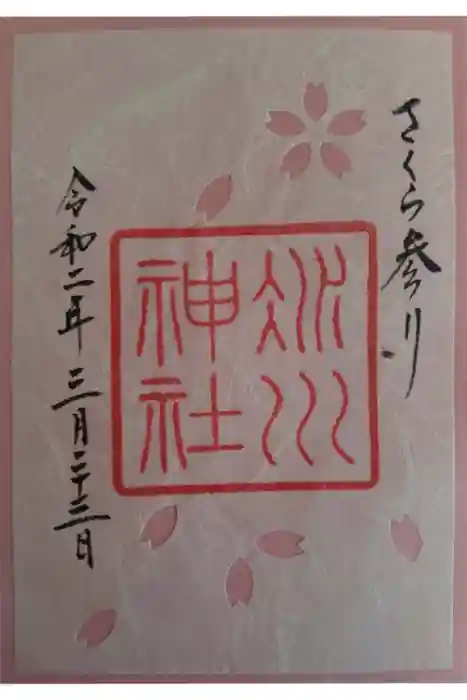 さくら参り
冰川
神社
令和二年三月二十三日